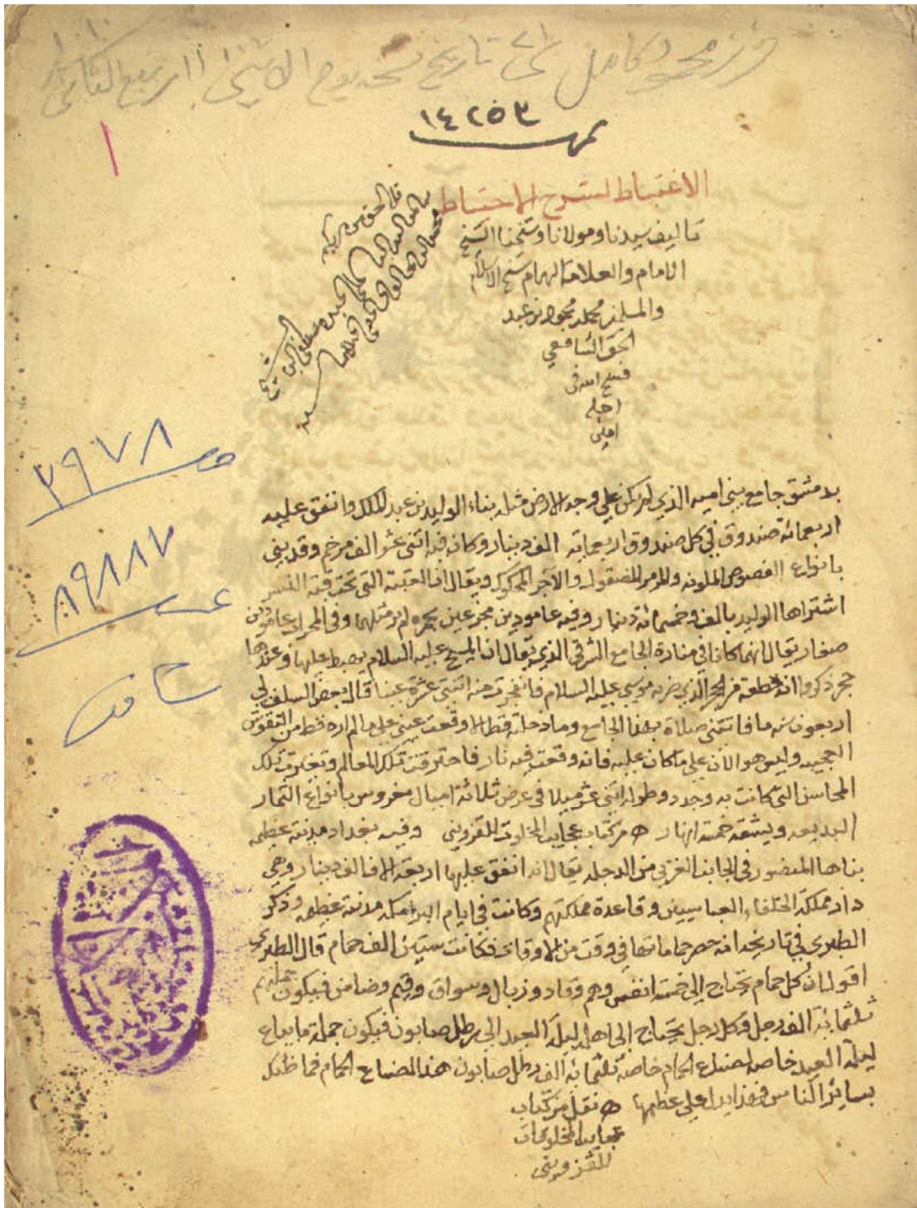 محمود كامل تاريخ يوم الاثنين ١١ ربيع الثاني
١٤٢٥٣
الاغتباط لشرح الاحتياط
تاليف سيدنا ومولانا وشيخنا الشيخ
الامام والعلامة الهمام شيخ الاسلام
والمسلمين محمد محمود بن عبد
الحق الشافعي
فسح الله في
اجله
امين
٢٩٧٨
٨٩٨٨٧
بدمشق جامع بني اميه الذي لم يكن علي وجه الارض مثله بناء الوليد بن عبد الملك وانفق عليه
اربعمائة صندوق في كل صندوق اربعماية الف دينار وكان فيه اثني عشر الف مرخم وقد بني
بانواع الفصوص الملونه والمرمر المصقول والآجر المحكوك ويقال ان العتبة التي تحت قبة النسر
اشتراها الوليد بالف وخمسمائة دينار وفيه عامودين مجزعين بحمره لم ير مثلهما وفي المحراب عامودين
صغار يقال انهما كانا في منارة الجامع الشرقي الذي يقال ان المسيح عليه السلام يهبط عليها وعندها
حجر ذكروا انه قطعة من الحجر الذي ضربه موسي عليه السلام فانفجرت منه اثنتي عشرة عينا قال بعض السلف لي
اربعون سنه ما فاتتني صلاة بهذا الجامع وما دخلته قط الا وقعت عيني علي ما لم اره قط من النقوش
العجيبه وليس هو الآن علي ما كان عليه فانه وقعت فيه نار فاحترقت تلك المعالم وتغيرت تلك
المحاسن التي كانت به وجدد وطوله اثني عشر ميلا في عرض ثلاثة اميال مغروس بانواع الثمار
البديعه ويشقه خمسة انهار ه من كتاب عجايب المخلوقات للقزويني وفيه بغداد مدينة عظيمه
بناها المنصور في الجانب الغربي من الدجله يقال انه انفق عليها اربعة الاف الف دينار وهي
دار مملكة الخلفاء العباسيين وقاعدة مملكتهم وكانت في ايام البرامكه مدينة عظيمه وذكر
الطبري في تاريخه انه حصر حماماتها في وقت من الاوقات فكانت ستين الف حمام قال الطبري
اقول ان كل حمام يحتاج الي خمسة انفس وهم وقاد وزبال وسواق وقيم وضامن فيكون جملتهم
ثلثماية الف رجل وكل رجل يحتاج الي اهله ليلة العيد الي رطل صابون فيكون جملة ما يباع
ليلة العيد خاصه لصناع الحمام خاصه ثلثمائة الف رطل صابون هذا لصناع الحمام فما ظنك
بسائر الناس فهذا يدل علي عظمها ه نقل من كتاب
عجايب المخلوقات
للقزويني